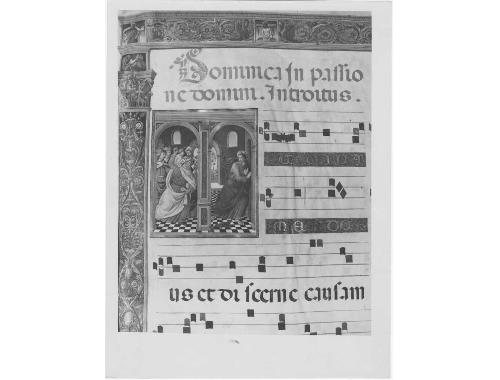 Dominica In passio
ne domini. Introitus.
UDICA
ME DE
us et di scerne causam